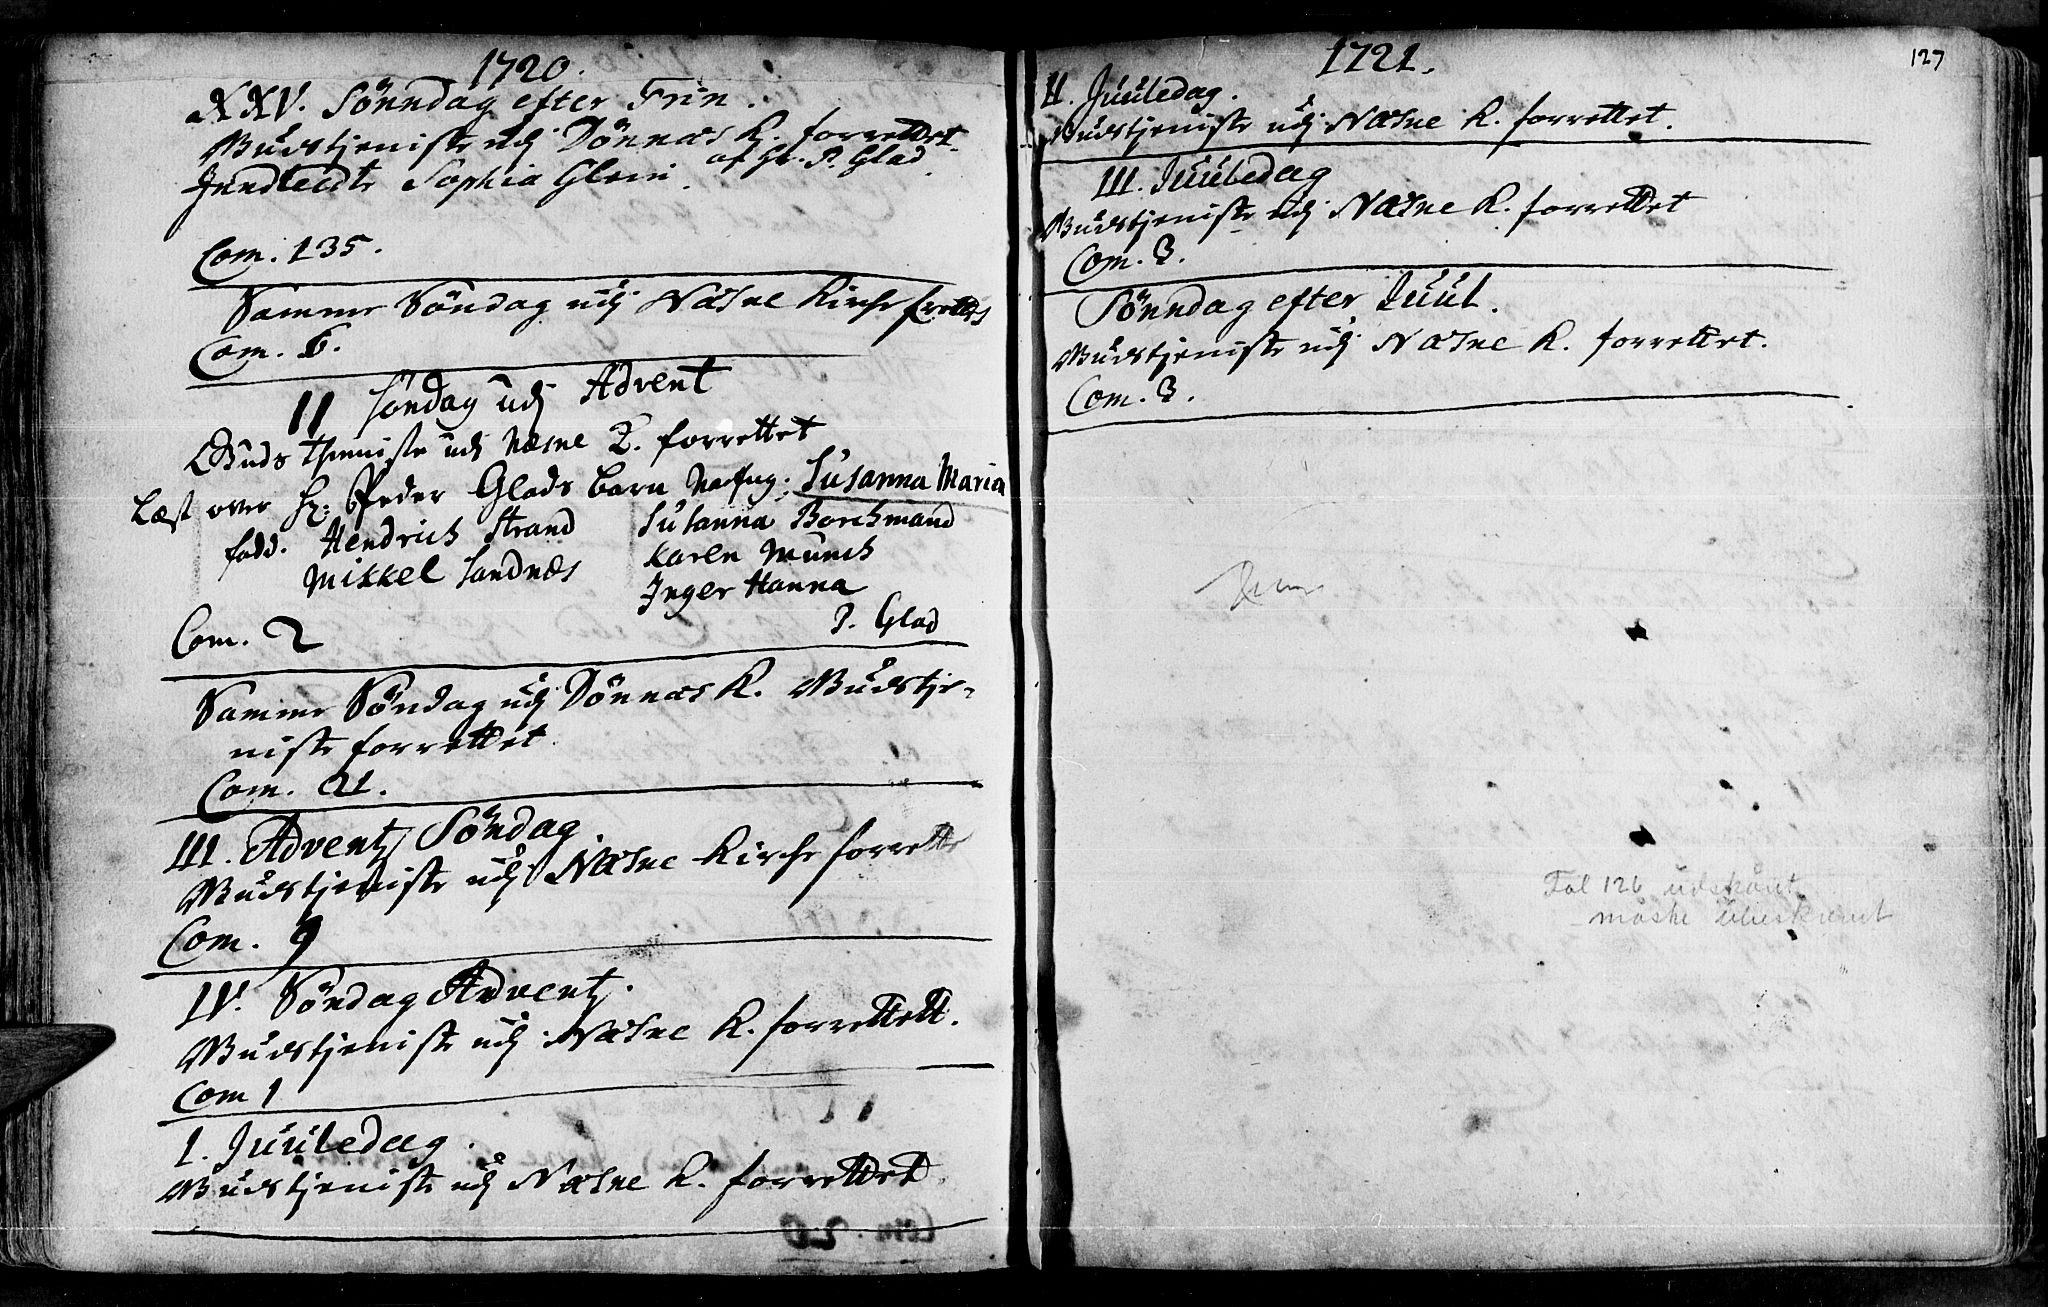 1720.
XXV. Sønndag efter Trin.
Gudstjeniste udj Dönnæs K. forrettet
af Hr. P. Glad.
Jndledte Sophia Glein.
Com. 135.
Samme Söndag udj Næsne Kirche frettes
Com. 6.
II Söndag udj Advent
Guds thieniste udj Næsne K. forrettet
Læst over Hr: Peder Glads barn Nafng: Susanna Maria
fadd. Hendrich Strand Susanna Borchmand
Mikkel Sandnæs Karen Munch
Jnger Hanna
Com. 2 P. Glad
Samme Söndag udj Dönnæs K. Gudstje-
niste forrettet
Com. 21.
III. Advents Söndag.
Gudstjeniste udj Næsne Kirche forrette
Com. 9
IV. Söndag Advents.
Gudstjeniste udj Næsne K. forrettett.
Com 1
I. Juuledag.
Gudstjeniste udj Næsne K. forrettet
1721.
127
II. Juuledag.
Gudstjeniste udj Næsne K. forrettet.
III. Juuledag
Gudstjeniste udj Næsne K. forrettet
Com. 3.
Sönndag efter Juul.
Gudstjeniste udj Næsne K. forrettet.
Com. 3.
Fol 126 udskåret
måske ubeskrevet